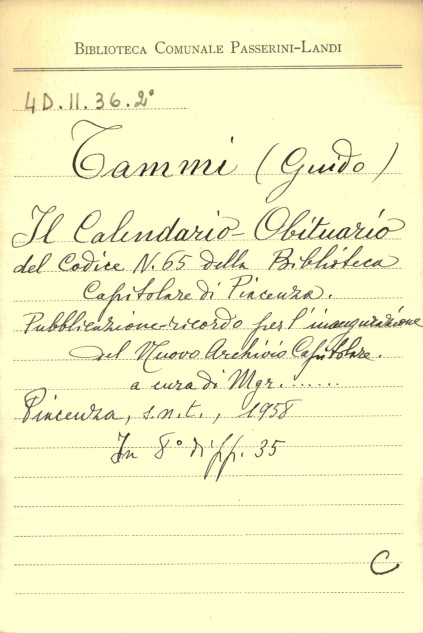 BIBLIOTECA COMUNALE PASSERINI-LANDI
4D.II.36.2°
Tammi (Guido)
Il Calendario-Obituario
del Codice N. 65 della Biblioteca
Capitolare di Piacenza.
Pubblicazione-ricordo per l'inaugurazione
del Nuovo Archivio Capitolare.
a cura di Mgr. .......
Piacenza, s.n.t., 1958
In 8° di pp. 35
C